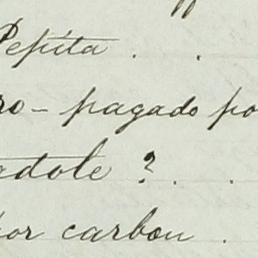 Pepita . .
ro - pagado po
adole ? . .
por carbon .